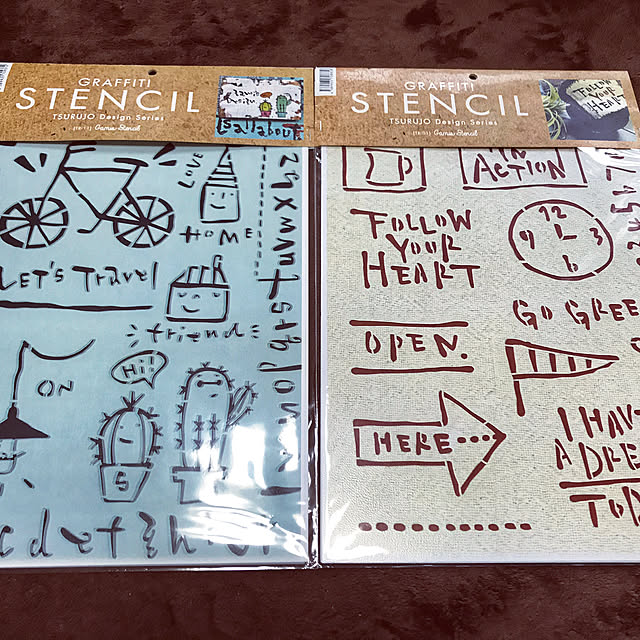 GRAFFITI
STENCIL
TSURUJO Design Series
LOVE
HOME
LET'S TRAVEL
friend
ON
Hi!
S
c d e f g h
GRAFFITI
STENCIL
TSURUJO Design Series
FOLLOW
YOUR
HEART
IN
ACTION
FOLLOW
YOUR
HEART
12
9
3
6
GO GREE
OPEN.
HERE
I HAV
A DRE
TOD